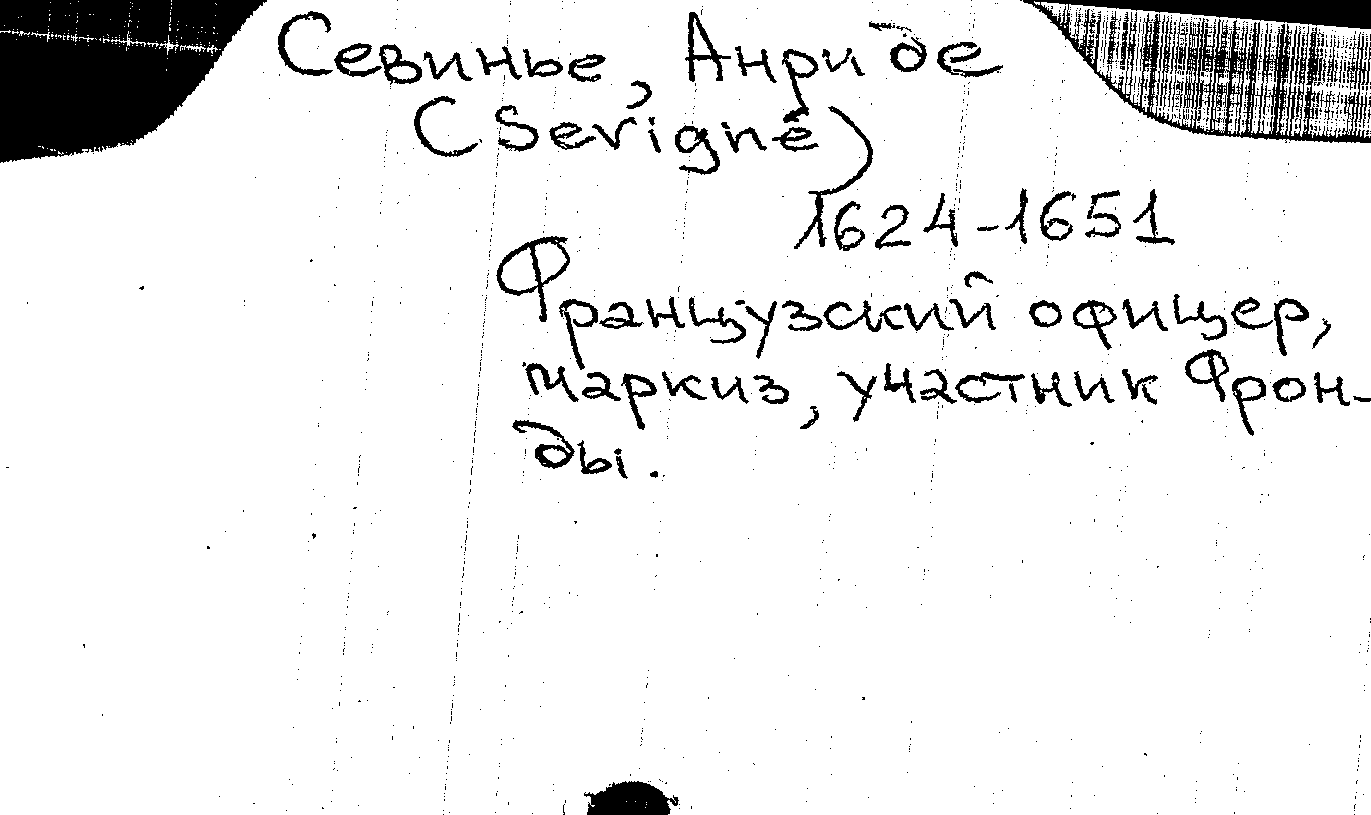 Севинье, Анри де
(Sevigné)
1624-1651
Французский офицер,
маркиз, участник Фрон-
ды.